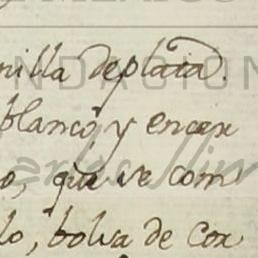 nilla de plata.
blanco, y encax
o, que se com
lo, bolsa de Cox